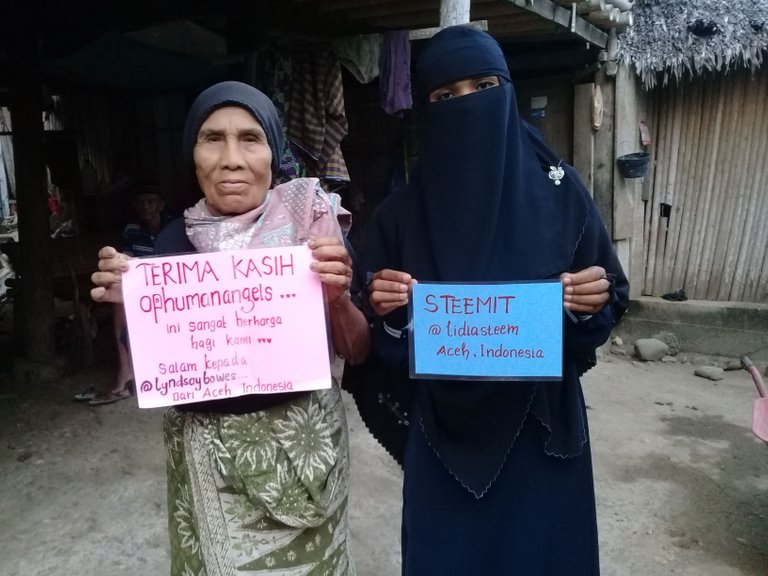 TERIMA KASIH
@ophumanangels ...
Ini sangat berharga
bagi kami ...
Salam kepada
@lyndsaybowes...
Dari Aceh Indonesia
STEEMIT
@tidlasteem
Aceh. Indonesia